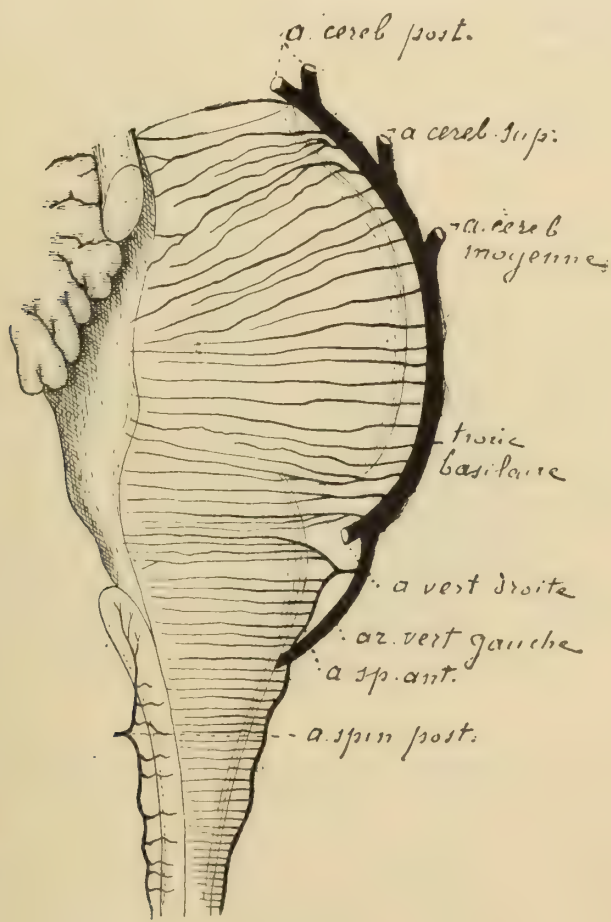 a. cereb post.
a cereb. sup.
a. cereb
moyenne
tronc
basilaire
a vert droite
ar. vert gauche
a sp. ant.
a. spin post.